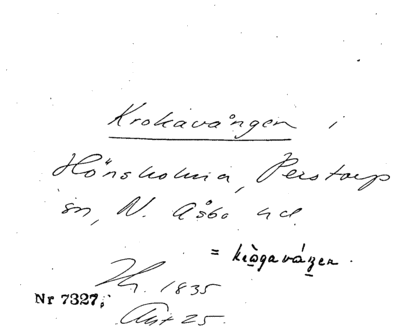 Krokavången i
Hönsholma, Perstorp
sn, N. Åsbo hd.
= krògaváŋen.
1835
Nr 7327;
Akt 25.